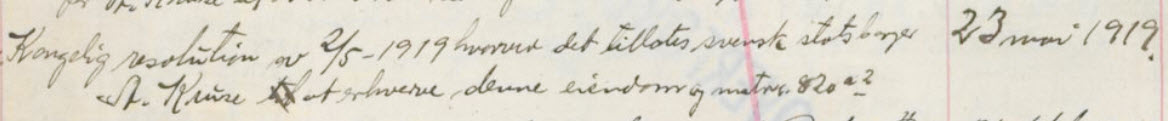 Kongelig resolution av 2/5-1919 hvorved det tillates svensk statsborger 23 mai 1919.
A. Kruse at erhverve denne eiendom og matr. 82 a²